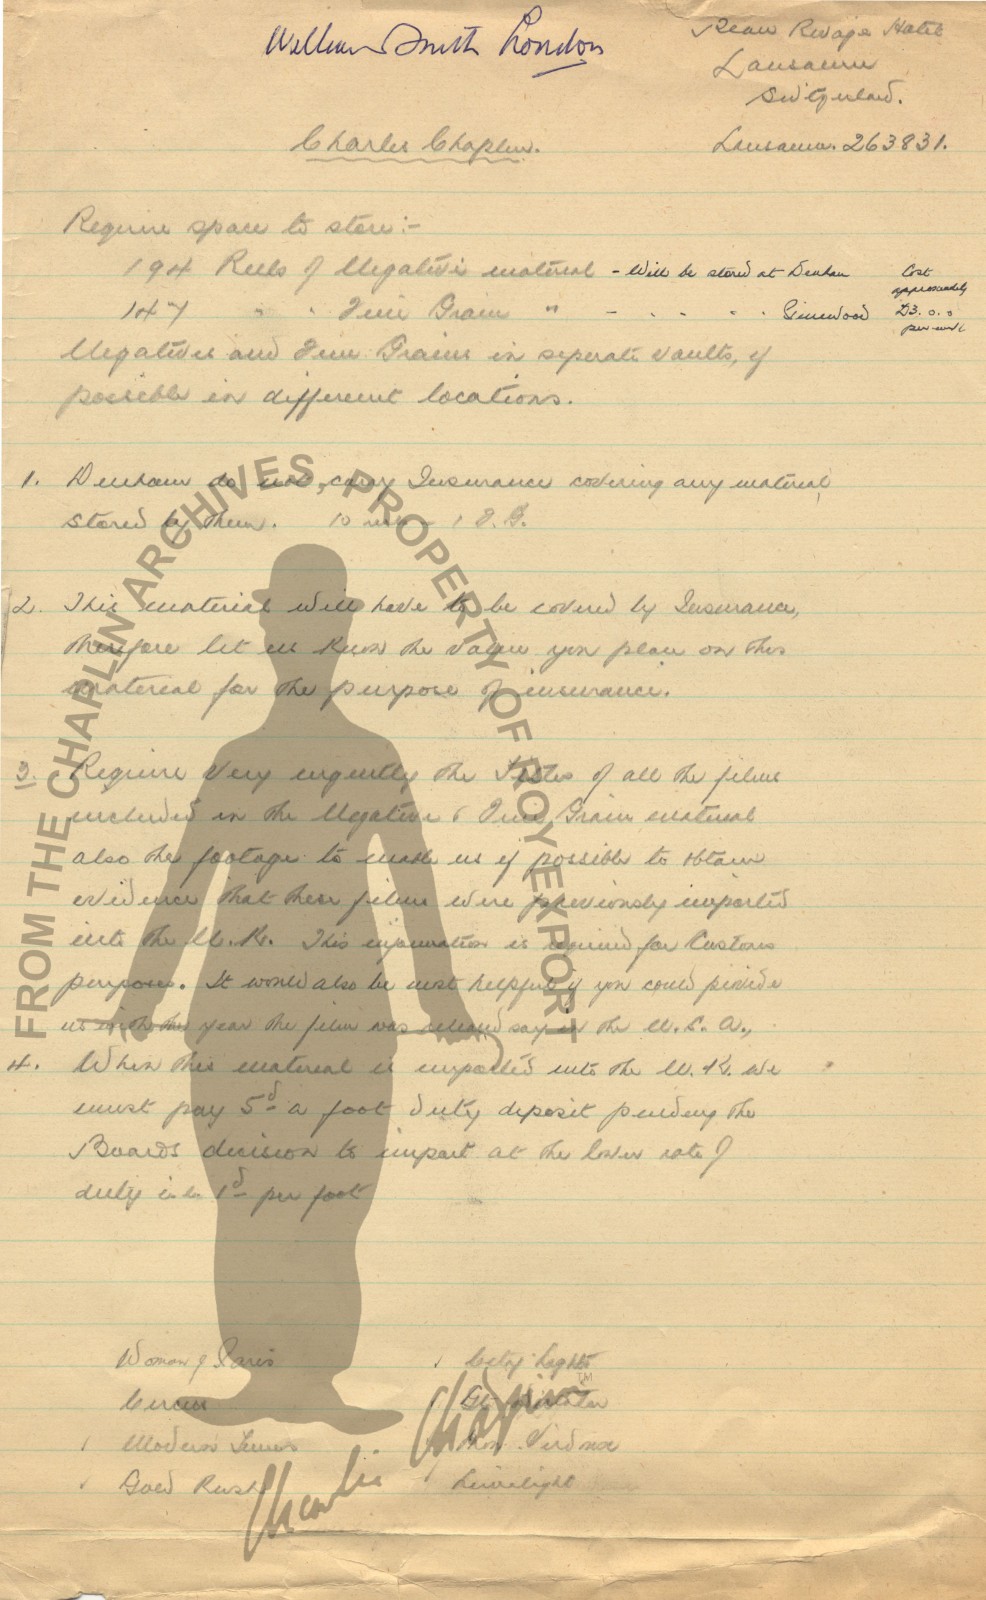 William Smith London
Beau Rivage Hotel
Lausanne
Switzerland.
Charles Chaplin.
Lausanne. 263831.
Require space to store :-
194 Reels of Negative material - Will be stored at Denham
Cost approximately £3. 0. 0 per week
147 " " Fine Grain " - " " " "
Negatives and Fine Grains in seperate vaults, if
possible in different locations.
1. Denham do not carry Insurance covering any material
stored by them. 10 1 F.G.
2. This material will have to be covered by Insurance,
therefore let us know the value you place on this
material for the purpose of insurance.
3. Require very urgently the Titles of all the films
included in the Negative & Fine Grain material
also the footage to enable us if possible to obtain
evidence that these films were previously imported
into the U.K. This information is required for Customs
purposes. It would also be most helpful if you could provide
us with the year the film was released say in the U.S.A.,
4. When this material is imported into the U.K. we
must pay 5d a foot duty deposit pending the
Boards decision to import at the lower rate of
duty i.e. 1d per foot
Woman of Paris
City Lights
Circus
Gt. Dictator
Modern Times
Mon. Verdoux
Gold Rush
Limelight
FROM THE CHAPLIN ARCHIVES PROPERTY OF ROY EXPORT
Charlie Chaplin™